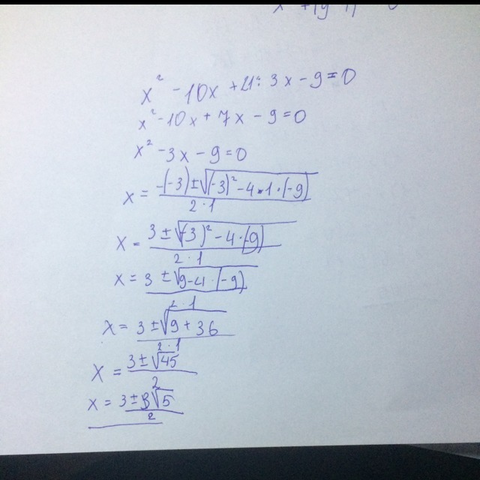 x² - 10x + 4 · 3x - 9 = 0
x² - 10x + 7x - 9 = 0
x² - 3x - 9 = 0
x = -(-3) ± √(-3)² - 4 · 1 · (-9) / 2 · 1
x = 3 ± √(-3)² - 4 · (-9) / 2 · 1
x = 3 ± √9 - 4 · (-9) / 2 · 1
x = 3 ± √9 + 36 / 2 · 1
x = 3 ± √45 / 2
x = 3 ± 3√5 / 2